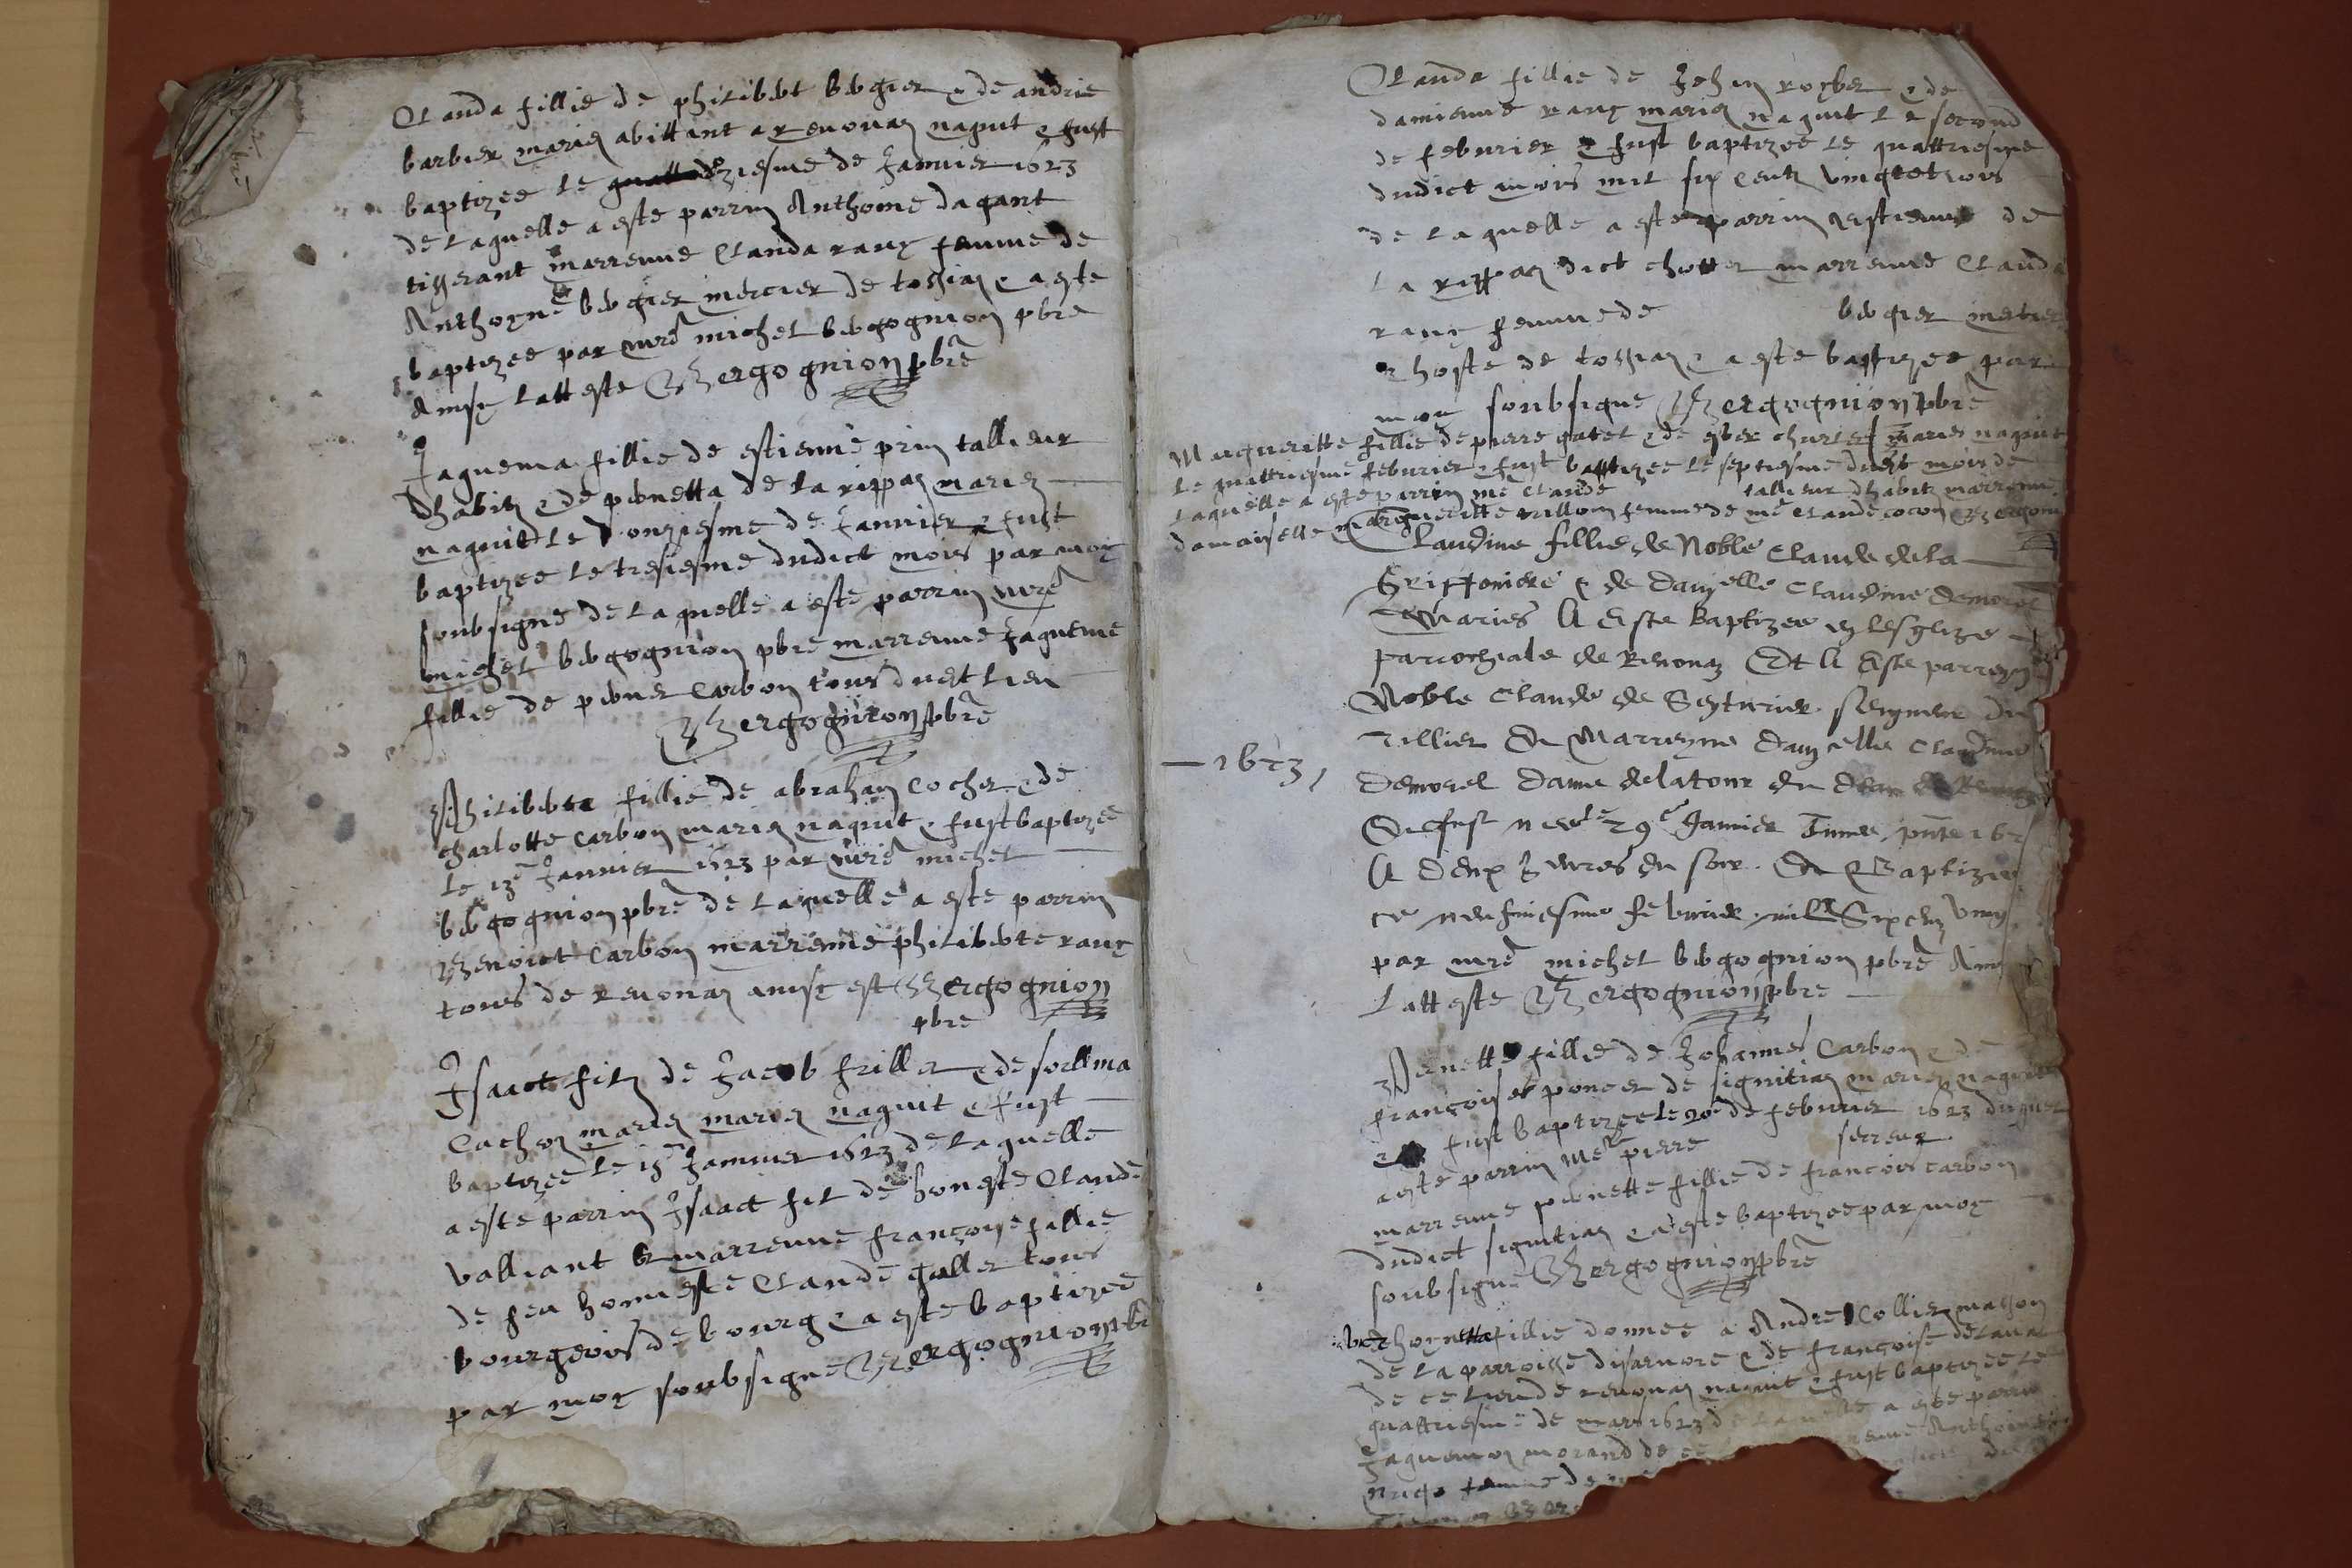 Clauda fillie de philibert bergier & de andrie
barbier mariez abittant a revonaz naquit & fust
baptizee le ziesme de Janvier 1623
de laquelle a este parrin Anthoine dagant
tisserant marrenne Clauda rauy femme de
Anthoyne bergier mercier de tossiaz & a este
baptizee par mre michel bergognion pbre
Ainsy latteste Bergognion pbre
Jaquema fillie de estienne prin tallieur
dhabitz & de pernetta de la rippaz mariez
naquit le donziesme de Janvier & fust
baptizee le tresiesme dudict mois par moy
soubsigne de laquelle a este parrin mre
michel bergognion pbre marrenne Jaqueme
fillie de perner Carbon tous duct lieu
Bergognion pbre
Philiberte fillie de abraham Cocher & de
charlotte Carbon mariez naquit & fust baptizee
le 13e Janvier 1623 par mre michel
bergognion pbre de laquelle a este parrin
Benoict Carbon marrenne philiberte rauy
tous de revonaz ainsy est Bergognion
pbre
Isaact filz de Jacob friller & de
Cachoz mariez mariez naquit & fust
baptizee le 15e Janvier 1623 de laquelle
a este parrin Isaact fil de honeste Claude
valliant & marrenne françoise fillie
de feu honneste Claude galler tous
bourgeois de bourg & a este baptizee
par moy soubsigne Bergognion pb
Clauda fillie de Jehan royber & de
damienne rauy mariez naquit le second
de febvrier & fust baptizee le quattriesme
dudict mois mil six centz vingtetrois
de laquelle a este parrin estienne de
la rippaz dict chotter marrenne Claud
rauy femme de bergier
& hoste de tossiaz & a este baptizee par
moy soubsigne Bergognion pbre
Margueritte fillie de pierre gatel & de mariez naquit
le quattriesme febvrier & fust baptizee le septiesme duct mois de
laquelle a este parrin me Claude tallieur dhabitz marrenne
damaiselle margueritte femme de me Claude cocon
Claudine fillie de Noble Claude de la
Griffoniere & de damzelle Claudine demorel
Mariés A Este Baptizee en lesglize
parrochiale de Revonaz Et A Este parreyn
Noble Claude de Seyturier seigneur du
Tillier Et Marreyne damzelle Claudine
— 1623,
Demorel Dame de la tour du
Et fust nee le 29e Janvier
A Deux heures du soir. Et Baptizee
ce neufviesme febvrier mill Six cens ving
par mre michel bergognion pbre Ains
latteste Bergognion pbre
Pernette fillie de Johannes Carbon & de
françoise poncer de signitiaz mariez naquit
& fust baptizee le 20e de febvrier 1623 duquel
a este parrin Me pierre serreur
marrenne pernette fillie de francois Carbon
dudict signitiaz & a este baptizee par moy
soubsigne Bergognion pbre
fillie donnee a Andre Collier masson
de la parroisse & de françoise delaval
de ce lieu de revonaz naquit & fust baptizee le
quattriesme de mars 1623 de laquelle a este parrin
Jaquemoz morand de ce
femme de